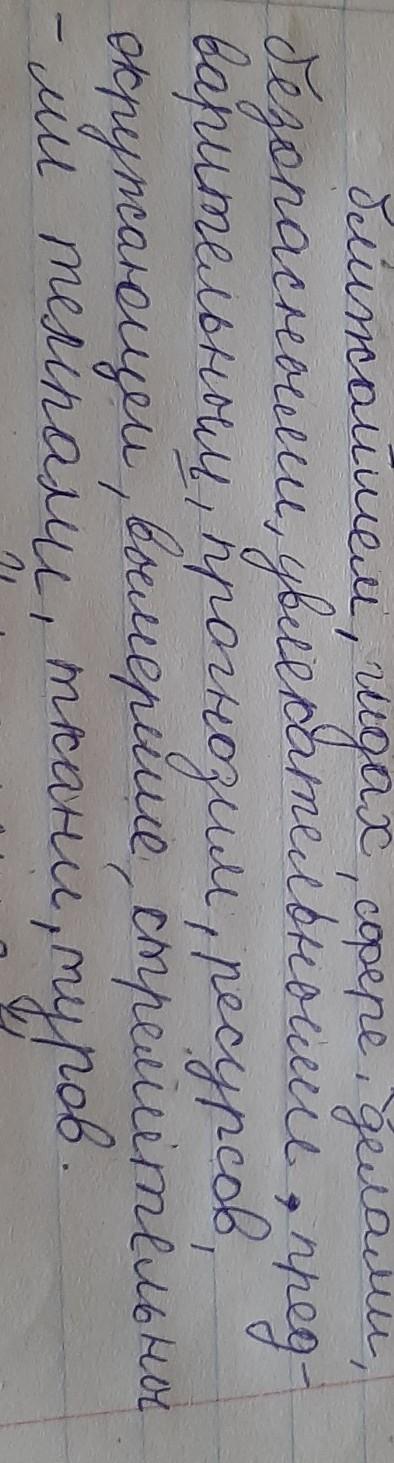 ближайшем, гидах, сфере, делами,
безопасными, увлекательными, пред-
варительным, прогнозим, ресурсов,
окружающем, вымершие, стремительны
- ми темпами, ткани, туров.